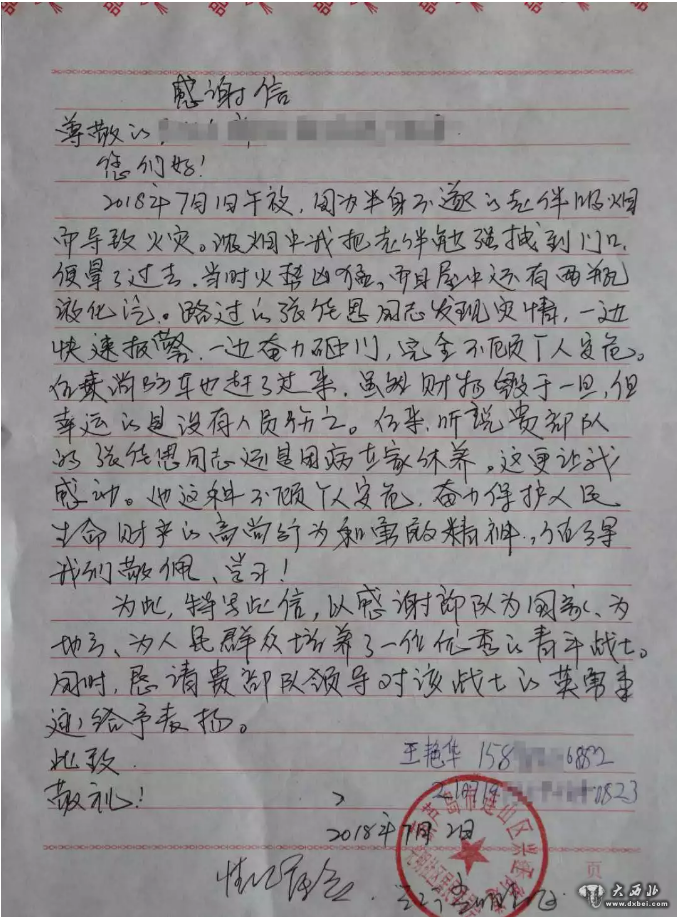 感谢信
尊敬的
您们好！
2018年7月1日午夜，因为半身不遂的老伴吸烟
而导致火灾。浓烟中我把老伴勉强拽到门口，
便晕了过去。当时火势凶猛，而且屋中还有两瓶
液化汽。路过的张能恩同志发现灾情，一边
快速报警，一边奋力砸门，完全不顾个人安危。
后来消防车也赶了过来，虽然财物毁于一旦，但
幸运的是没有人员伤亡。后来，听说贵部队
的张能恩同志还是因病在家休养。这更让我
感动。他这种不顾个人安危，奋力保护人民
生命财产的高尚行为和勇敢精神，值得
我们敬佩、学习！
为此，特写此信，以感谢部队为国家、为
地方、为人民群众培养了一位优秀的青年战士。
同时，恳请贵部队领导对该战士的英勇事
迹给予表扬。
此致
王艳华 158 6882
敬礼！
0823
2018年7月2日
情况属实
页
大西北
www.dxbei.com